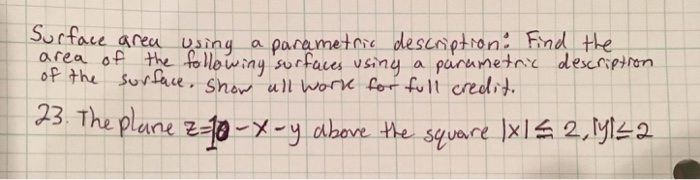 Surface area using a parametric description: Find the
area of the following surfaces using a parametric description
of the surface. Show all work for full credit.
23. The plane z=10-x-y above the square |x|≤ 2, |y|≤2